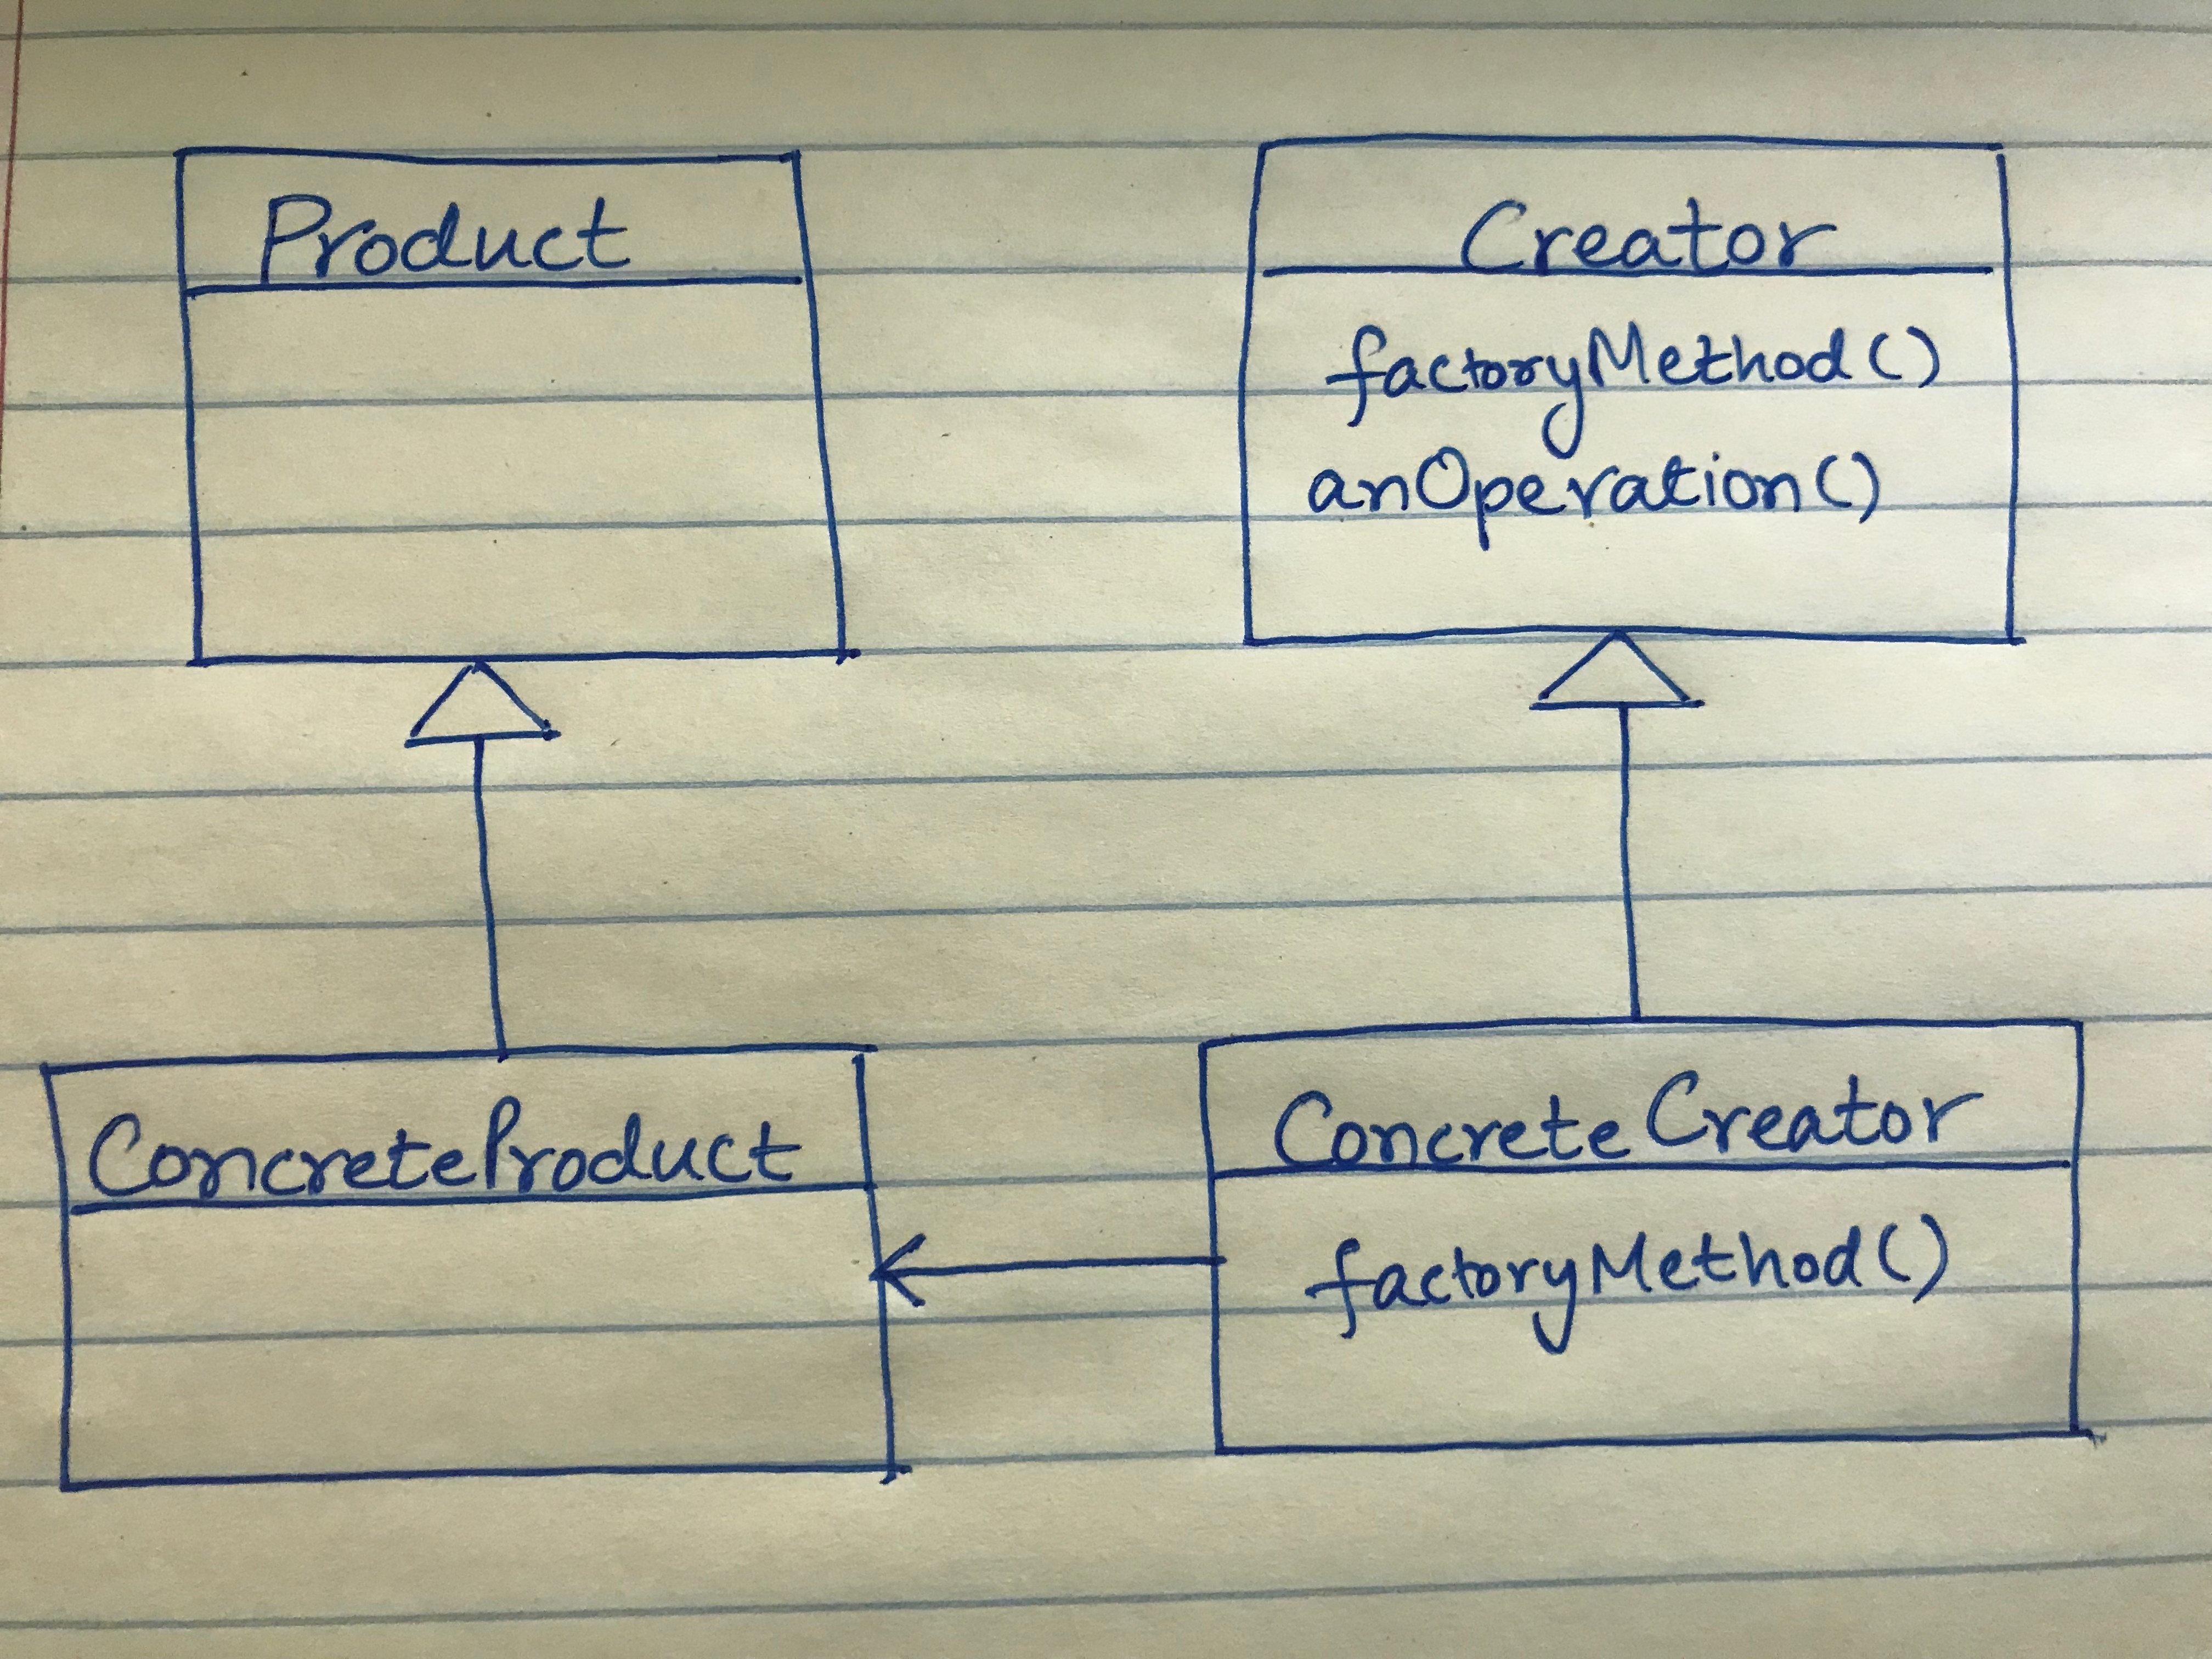 Product
Creator
factoryMethod()
anOperation()
ConcreteProduct
ConcreteCreator
factoryMethod()